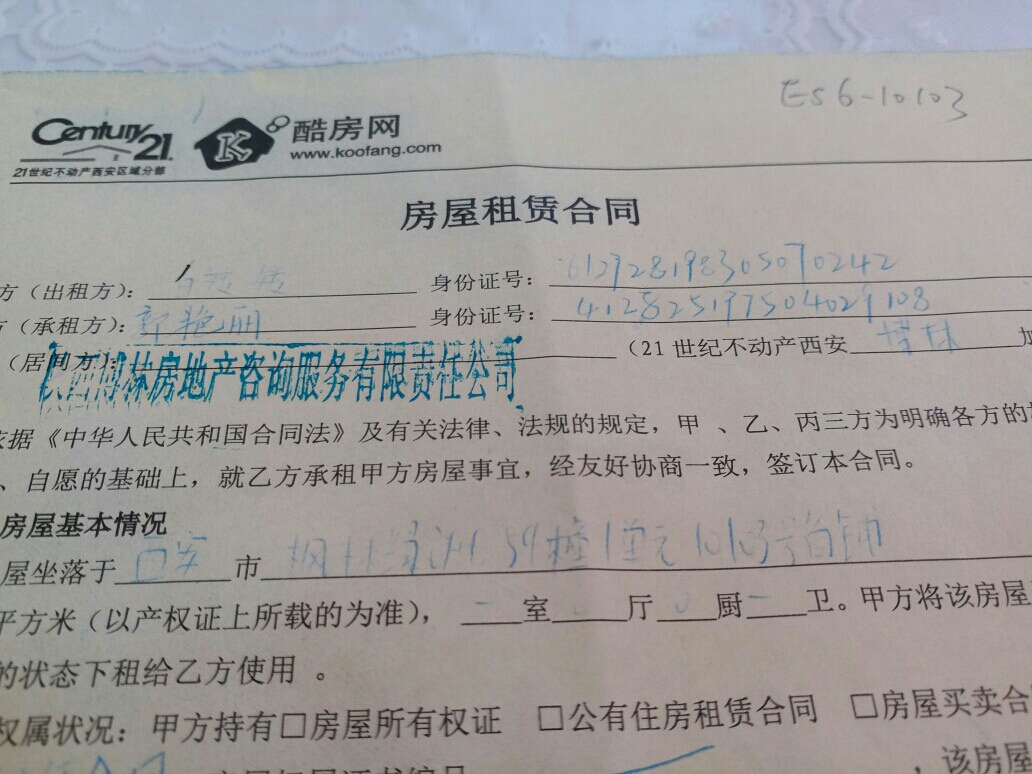 Es6-10103
Century 21 酷房网
www.koofang.com
21世纪不动产西安区域分部
房屋租赁合同
方（出租方）： 身份证号：612728198305070242
方（承租方）：郭艳丽 身份证号：412825197504029108
（居间方）： 博林房地产咨询服务有限责任公司 （21世纪不动产西安 博林 加
依据《中华人民共和国合同法》及有关法律、法规的规定，甲 、乙、丙三方为明确各方的
、自愿的基础上，就乙方承租甲方房屋事宜，经友好协商一致，签订本合同。
房屋基本情况
屋坐落于 西安 市 枫林绿洲 59幢1单元10103号商铺
平方米（以产权证上所载的为准）， 室 厅 厨 卫。甲方将该房屋
的状态下租给乙方使用 。
权属状况：甲方持有□房屋所有权证 □公有住房租赁合同 □房屋买卖合
，该房屋